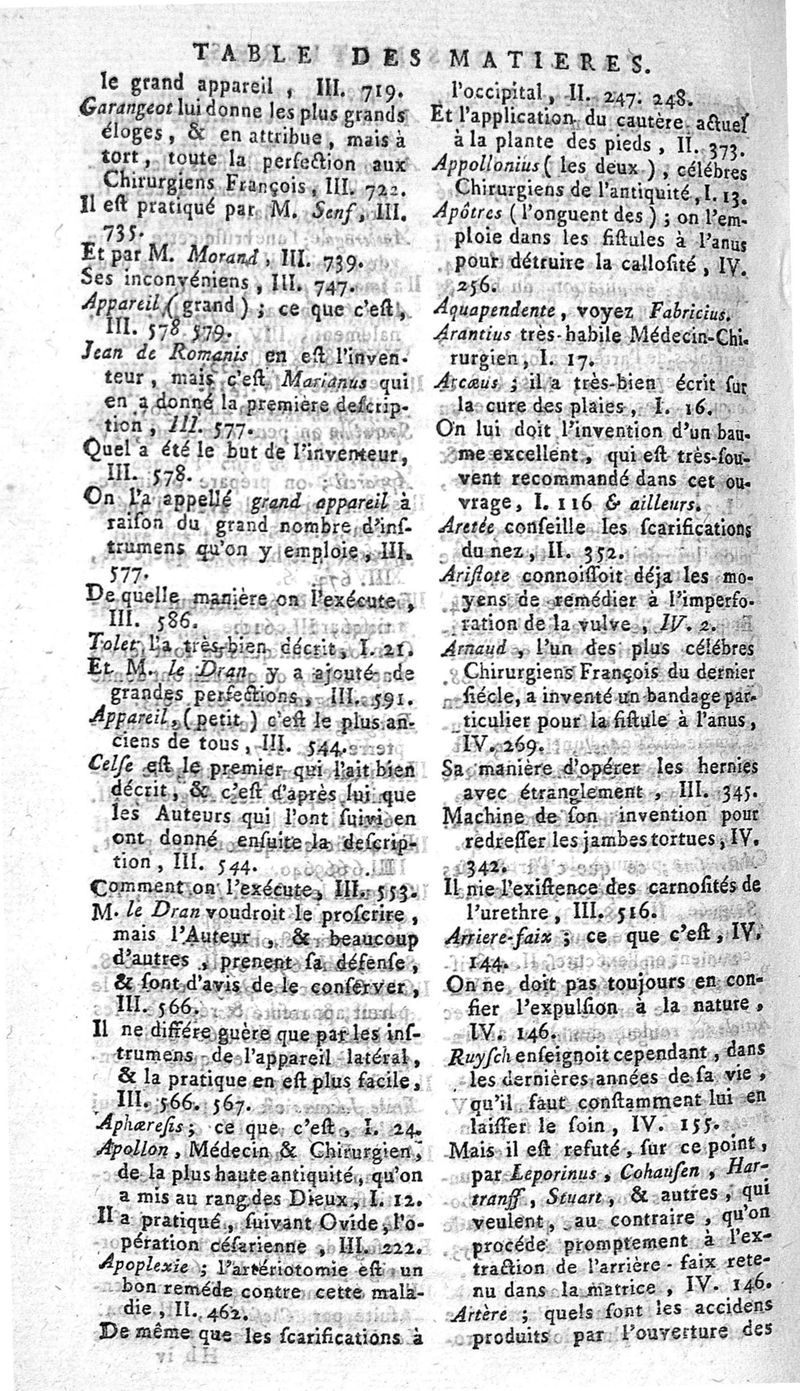 TABLE DES MATIERES.
le grand appareil, III. 719.
Garangeot lui donne les plus grands
éloges, & en attribue, mais à
tort, toute la perfection aux
Chirurgiens François, III. 722.
Il eſt pratiqué par M. Senf, III.
735.
Et par M. Morand, III. 739.
Ses inconvéniens, III. 747.
Appareil (grand); ce que c'eſt,
III. 578. 579.
Jean de Romanis en eſt l'inven-
teur, mais c'eſt Marianus qui
en a donné la première deſcrip-
tion, III. 577.
Quel a été le but de l'inventeur,
III. 578.
On l'a appellé grand appareil à
raiſon du grand nombre d'inſ-
trumens qu'on y emploie, III.
577.
De quelle manière on l'exécute,
III. 586.
Tolet l'a très-bien décrit, I. 21.
Et M. le Dran y a ajouté de
grandes perfections, III. 591.
Appareil, (petit) c'eſt le plus an-
ciens de tous, III. 544.
Celſe eſt le premier qui l'ait bien
décrit, & c'eſt d'après lui que
les Auteurs qui l'ont ſuivi en
ont donné enſuite la deſcrip-
tion, III. 544.
Comment on l'exécute, III. 553.
M. le Dran voudroit le proſcrire,
mais l'Auteur, & beaucoup
d'autres, prenent ſa défenſe,
& ſont d'avis de le conſerver,
III. 566.
Il ne différe guère que par les inſ-
trumens de l'appareil latéral,
& la pratique en eſt plus facile,
III. 566. 567.
Aphæreſis; ce que c'eſt, I. 24.
Apollon, Médecin & Chirurgien,
de la plus haute antiquité, qu'on
a mis au rang des Dieux, I. 12.
Il a pratiqué, ſuivant Ovide, l'o-
pération céſarienne, III. 222.
Apoplexie; l'artériotomie eſt un
bon reméde contre cette mala-
die, II. 462.
De même que les ſcarifications à
l'occipital, II. 247. 248.
Et l'application du cautère actuel
à la plante des pieds, II. 373.
Appollonius (les deux), célébres
Chirurgiens de l'antiquité, I. 13.
Apôtres (l'onguent des); on l'em-
ploie dans les fiſtules à l'anus
pour détruire la calloſité, IV.
256.
Aquapendente, voyez Fabricius.
Arantius très-habile Médecin-Chi-
rurgien, I. 17.
Arcæus; il a très-bien écrit ſur
la cure des plaies, I. 16.
On lui doit l'invention d'un bau-
me excellent, qui eſt très-ſou-
vent recommandé dans cet ou-
vrage, I. 116 & ailleurs.
Aretée conſeille les ſcarifications
du nez, II. 352.
Ariſtote connoiſſoit déja les mo-
yens de remédier à l'imperfo-
ration de la vulve, IV. 2.
Arnaud, l'un des plus célébres
Chirurgiens François du dernier
ſiécle, a inventé un bandage par-
ticulier pour la fiſtule à l'anus,
IV. 269.
Sa manière d'opérer les hernies
avec étranglement, III. 345.
Machine de ſon invention pour
redreſſer les jambes tortues, IV.
342.
Il nie l'exiſtence des carnoſités de
l'urethre, III. 516.
Arriere-faix; ce que c'eſt, IV.
144.
On ne doit pas toujours en con-
fier l'expulſion à la nature,
IV. 146.
Ruyſch enſeignoit cependant, dans
les dernières années de ſa vie,
qu'il faut conſtamment lui en
laiſſer le ſoin, IV. 155.
Mais il eſt refuté, ſur ce point,
par Leporinus, Cohauſen, Har-
tranff, Stuart, & autres, qui
veulent, au contraire, qu'on
procéde promptement à l'ex-
traction de l'arrière-faix rete-
nu dans la matrice, IV. 146.
Artère; quels ſont les accidens
produits par l'ouverture des